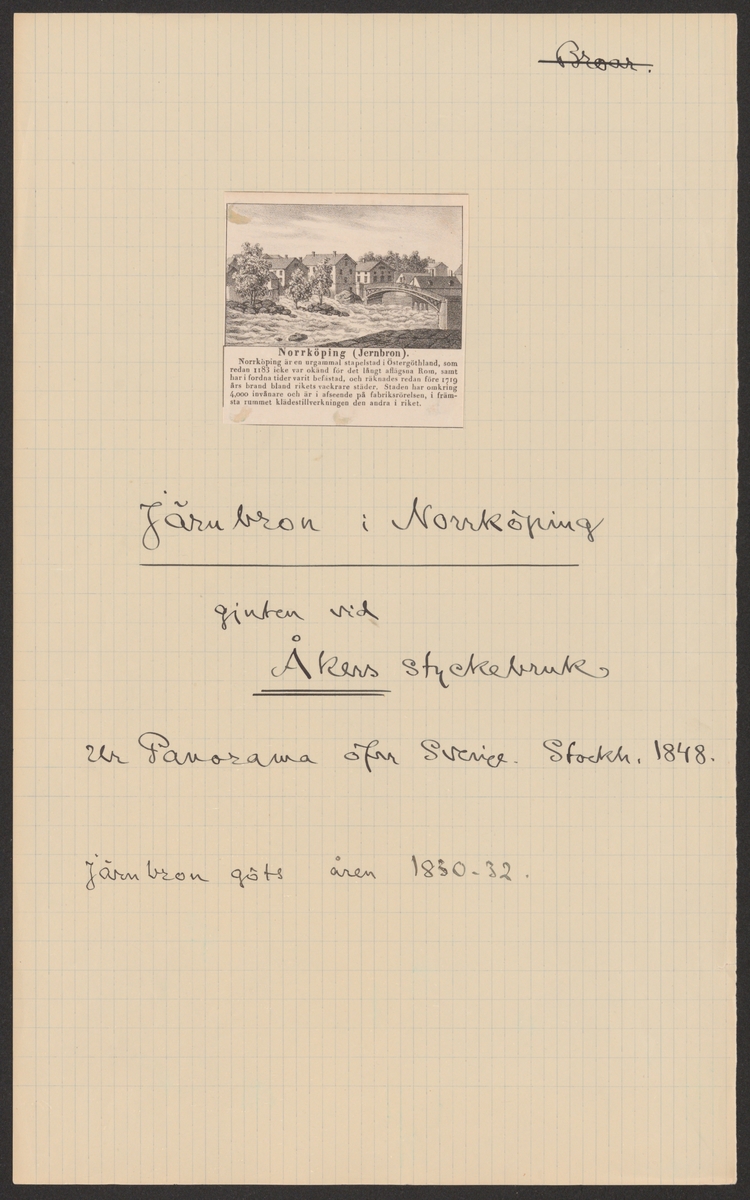 Broar.
Norrköping (Jernbron).
Norrköping är en urgammal stapelstad i Östergöthland, som
redan 1183 icke var okänd för det långt aflägsna Rom, samt
har i fordna tider varit befästad, och räknades redan före 1719
års brand bland rikets vackrare städer. Staden har omkring
4,000 invånare och är i afseende på fabriksrörelsen, i främ-
sta rummet klädestillverkningen den andra i riket.
Järnbron i Norrköping
gjuten vid
Åkers styckebruk
Ur Panorama öfver Sverige. Stockh. 1848.
Järnbron göts åren 1830-32.